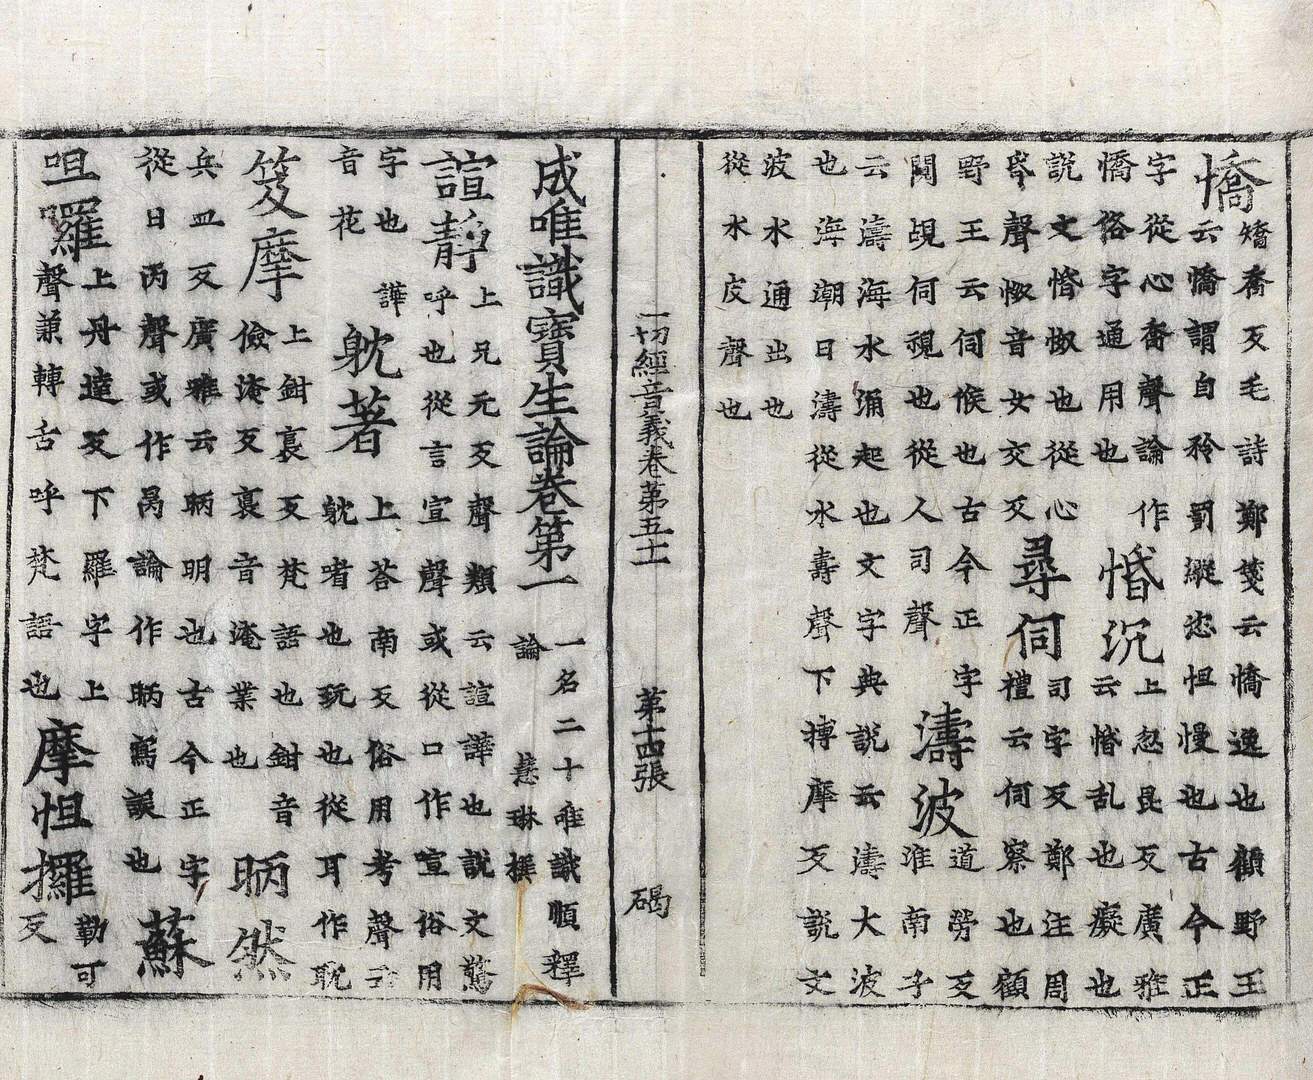 憍矯喬反毛詩鄭箋云憍逸也顧野王
云憍謂自矜罰縱恣怛慢也古今正
字從心喬聲論作
憍俗字通用也
惛沉上忽昆反廣雅
云惛乱也癡也
說文惛怓也從心
昏聲怓音女交反
尋伺司字反鄭注周
禮云伺察也顧
野王云伺候也古今正字
覘伺視也從人司聲
濤波道勞反
淮南子
云濤海水涌起也文字典說云濤大波
也海潮日濤從水壽聲下搏摩反說文
波水通出也
從水皮聲也
一切經音義卷第五十一 第十四張 碣
成唯識寶生論卷第一
一名二十唯識順釋
論 慧琳撰
諠靜上兄元反聲類云諠譁也說文驚
呼也從言宣聲或從口作喧俗用
字也譁
音花
躭著上荅南反俗用考聲云
躭嗜也玩也從耳作耽
笈摩上鉗裛反梵語也鉗音
儉淹反裛音淹業也
昞然
兵皿反廣雅云昞明也古今正字
從日丙聲或作昺論作昞寫誤也
蘇
呾囉上丹達反下羅字上
聲兼轉舌呼梵語也
摩怛攞勒可
反